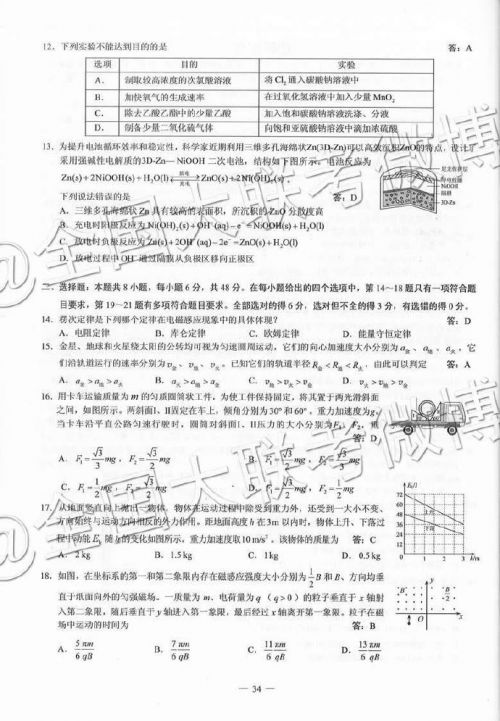 12．下列实验不能达到目的的是 答：A
选项 目的 实验
A． 制取较高浓度的次氯酸溶液 将Cl₂通入碳酸钠溶液中
B． 加快氧气的生成速率 在过氧化氢溶液中加入少量MnO₂
C． 除去乙酸乙酯中的少量乙酸 加入饱和碳酸钠溶液洗涤、分液
D． 制备少量二氧化硫气体 向饱和亚硫酸钠溶液中滴加浓硫酸
13．为提升电池循环效率和稳定性，科学家近期利用三维多孔海绵状Zn(3D-Zn)可以高效沉积ZnO的特点，设计了
采用强碱性电解质的3D-Zn—NiOOH二次电池，结构如下图所示。电池反应为
Zn(s)+2NiOOH(s)+H₂O(l) 放电 充电 ZnO(s)+2Ni(OH)₂(s)。
尼龙保护层
导电线圈
NiOOH
隔膜
3D-Zn
下列说法错误的是 答：D
A．三维多孔海绵状Zn具有较高的表面积，所沉积的ZnO分散度高
B．充电时阳极反应为Ni(OH)₂(s)+OH⁻(aq)−e⁻=NiOOH(s)+H₂O(l)
C．放电时负极反应为Zn(s)+2OH⁻(aq)−2e⁻=ZnO(s)+H₂O(l)
D．放电过程中OH⁻通过隔膜从负极区移向正极区
二、选择题：本题共8小题，每小题6分，共48分。在每小题给出的四个选项中，第14～18题只有一项符合题
目要求，第19～21题有多项符合题目要求。全部选对的得6分，选对但不全的得3分，有选错的得0分。
14．楞次定律是下列哪个定律在电磁感应现象中的具体体现？ 答：D
A．电阻定律 B．库仑定律 C．欧姆定律 D．能量守恒定律
15．金星、地球和火星绕太阳的公转均可视为匀速圆周运动，它们的向心加速度大小分别为a金、a地、a火，它
们沿轨道运行的速率分别为v金、v地、v火。已知它们的轨道半径R金<R地<R火，由此可以判定 答：A
A．a金>a地>a火 B．a火>a地>a金 C．v地>v火>v金 D．v火>v地>v金
16．用卡车运输质量为m的匀质圆筒状工件，为使工件保持固定，将其置于两光滑斜面
之间，如图所示。两斜面I、II固定在车上，倾角分别为30°和60°。重力加速度为g。
当卡车沿平直公路匀速行驶时，圆筒对斜面I、II压力的大小分别为F₁、F₂，则
答：D
A．F₁=√3/3 mg，F₂=√3/2 mg B．F₁=√3/2 mg，F₂=√3/3 mg
C．F₁=1/2 mg，F₂=√3/2 mg D．F₁=√3/2 mg，F₂=1/2 mg
17．从地面竖直向上抛出一物体，物体在运动过程中除受到重力外，还受到一大小不变、
方向始终与运动方向相反的外力作用。距地面高度h在3m以内时，物体上升、下落过
程中动能Eₖ随h的变化如图所示。重力加速度取10m/s²。该物体的质量为 答：C
A．2kg B．1.5kg C．1kg D．0.5kg
Eₖ/J
72
60
48
36
24
12
0 1 2 3 h/m
18．如图，在坐标系的第一和第二象限内存在磁感应强度大小分别为1/2 B和B、方向均垂
直于纸面向外的匀强磁场。一质量为m、电荷量为q（q>0）的粒子垂直于x轴射
入第二象限，随后垂直于y轴进入第一象限，最后经过x轴离开第一象限。粒子在磁
场中运动的时间为 答：B
B
B/2
y
O
x
A．5πm/6qB B．7πm/6qB C．11πm/6qB D．13πm/6qB
— 34 —
@全国大联考微博
@全国大联考微博